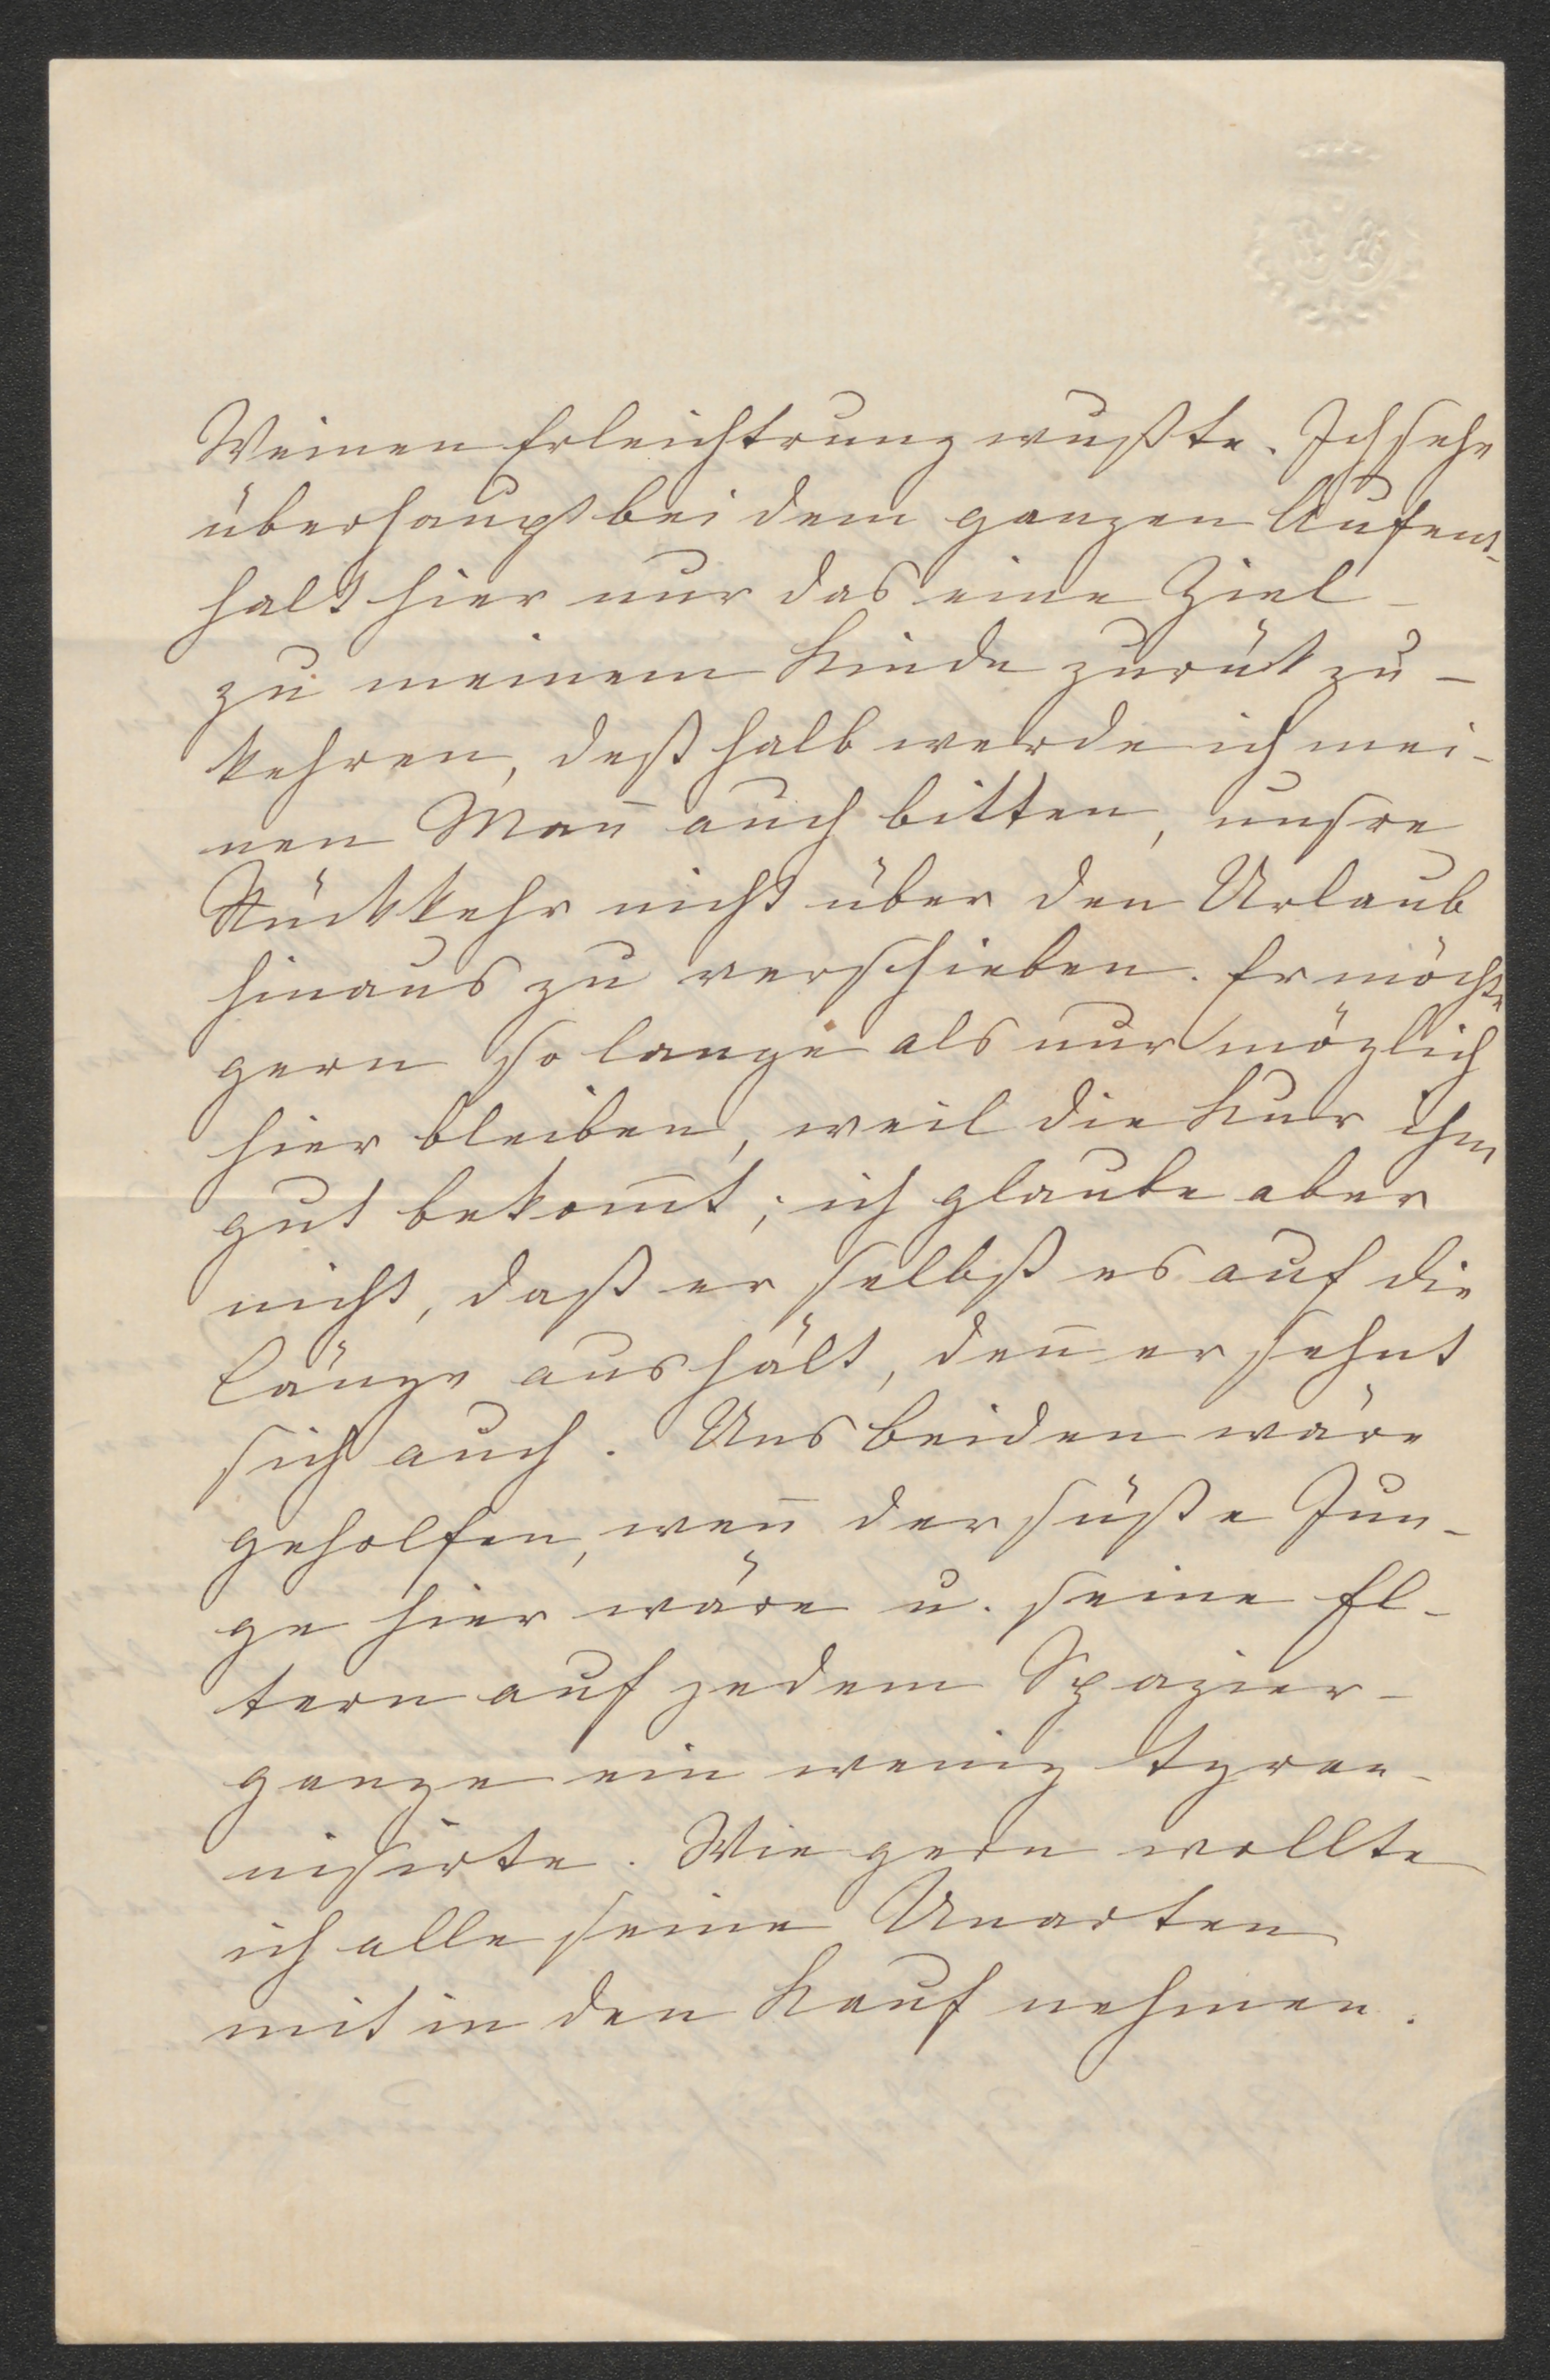 Weinen Erleichtrung wußte. Ich sehe
überhaupt bei dem ganzen Aufent-
halt hier nur das eine Ziel –
zu meinem Kinde zurück zu –
kehren, deßhalb werde ich mei-
nen Man̄ auch bitten, unsre
Rückkehr nicht über den Urlaub
hinaus zu verschieben. Er möchte
gern so lange als nur möglich
hier bleiben, weil die Kur ihm
gut bekom̄t; ich glaube aber
nicht, daß er selbst es auf die
Länge aushält, den̄ er sehnt
sich auch. Uns beiden wäre
geholfen, wen̄ der süße Jun-
ge hier wäre u. seine El-
tern auf jedem Spazier-
gange ein wenig tyran-
nisirte. Wie gern wollte
ich alle seine Unarten
mit in den Kauf nehmen.